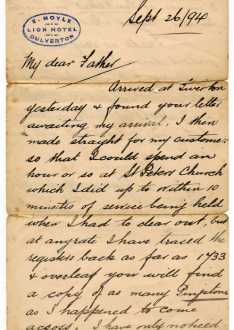 E. NOYLE
LION HOTEL
DULVERTON
Sept 26/94
My dear Father
Arrived at Tiverton
yesterday & found your letter
awaiting my arrival. I then
made straight for my customer
so that I could spend an
hour or so at St Peters Church
which I did up to within 10
minutes of service being held
when I had to clear out, but
at any rate I have traced the
registers back as far as 1733
& overleaf you will find
a copy of as many
as I happened to come
across. I have only noticed